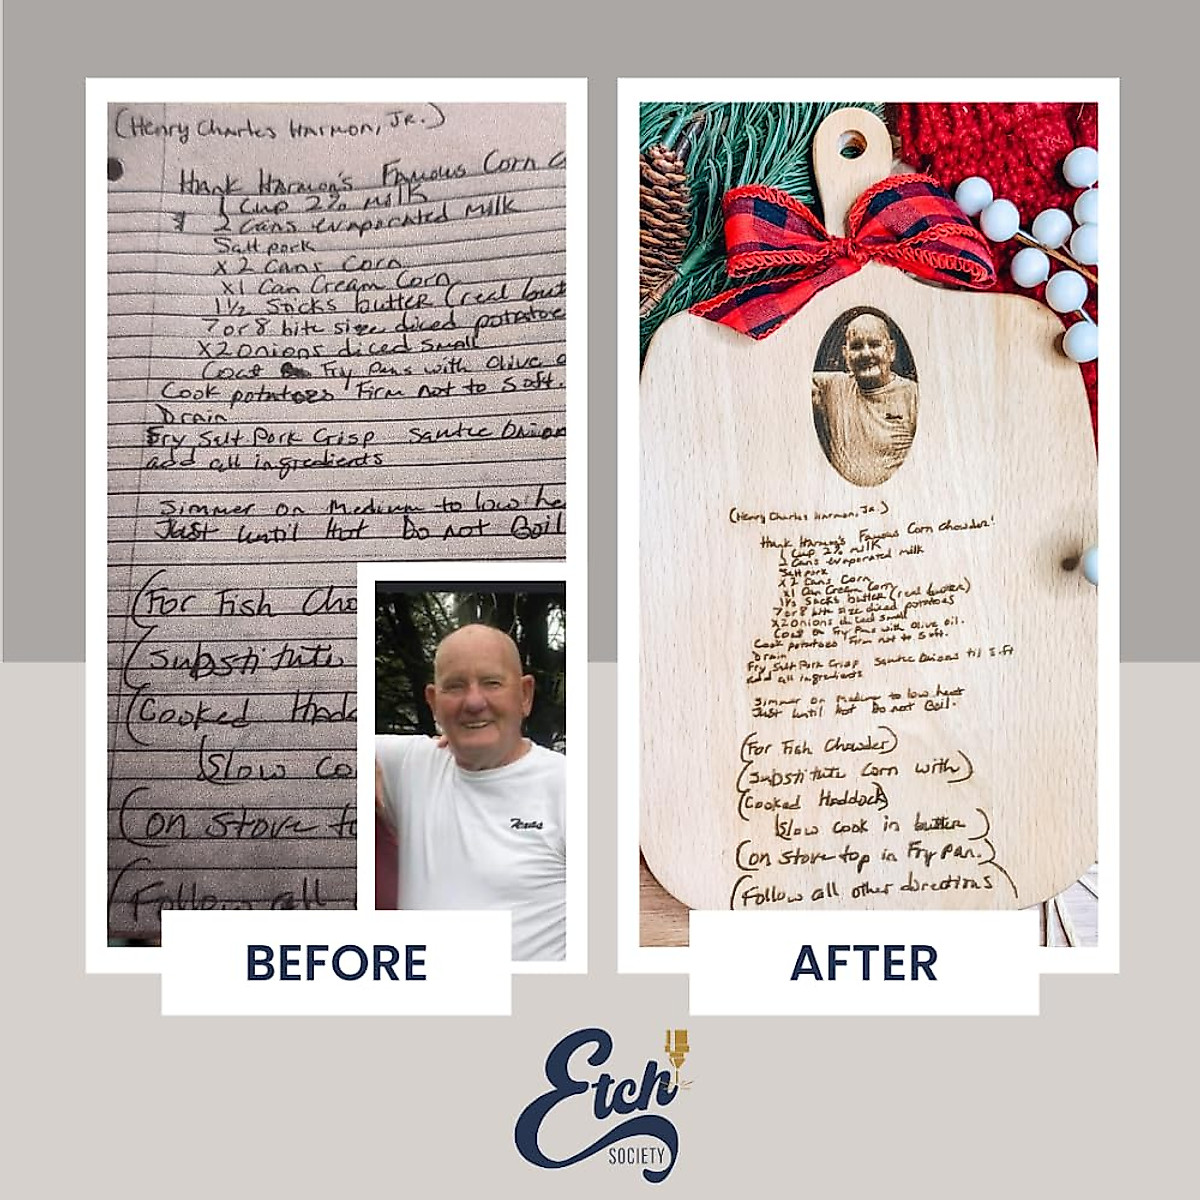 (Henry Charles Harmon, Jr.)
Hank Harmon's Famous Corn C
1 Cup 2% milk
2 Cans evaporated milk
Salt pork
x 2 Cans Corn
x1 Can Cream Corn
1½ Sticks butter (real but
7 or 8 bite size diced potatoe
x2 onions diced small
Coat Fry Pans with Olive o
Cook potatoes Firm not to Soft.
Drain
Fry Salt Pork Crisp Sautee Onion
add all ingredients
Simmer on Medium to low he
Just until Hot Do not Boil
(For Fish Cho
(Substitute
(Cooked Hadd
(Slow Co
(on stove t
(Follow all
Texas
BEFORE
(Henry Charles Harmon, Jr.)
Hank Harmon's Famous Corn Chowder!
1 Cup 2% milk
2 Cans evaporated milk
Salt pork
x 2 Cans Corn
x1 Can Cream Corn
1½ Sticks butter (real butter)
7 or 8 bite size diced potatoes
x2 onions diced small
Coat Fry Pans with olive oil.
Cook potatoes Firm not to Soft.
Drain
Fry Salt Pork Crisp Sautee Onions til Soft
add all ingredients
Simmer on Medium to low heat
Just until Hot Do not Boil.
(For Fish Chowder)
(Substitute Corn with)
(Cooked Haddock)
(Slow Cook in butter)
(on stove top in Fry Pan.)
(Follow all other directions)
AFTER
Etch
SOCIETY